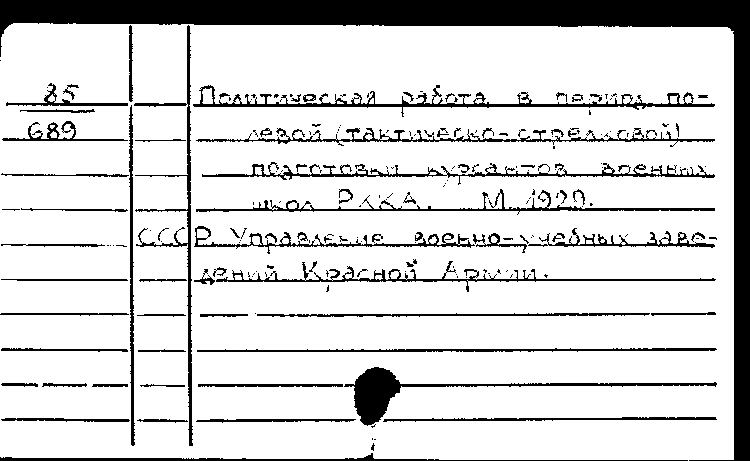 85 Политическая работа в период по-
689 левой (тактическо-стрелковой)
подготовки курсантов военных
школ РККА. М., 1929.
СССР. Управление военно-учебных заве-
дений Красной Армии.